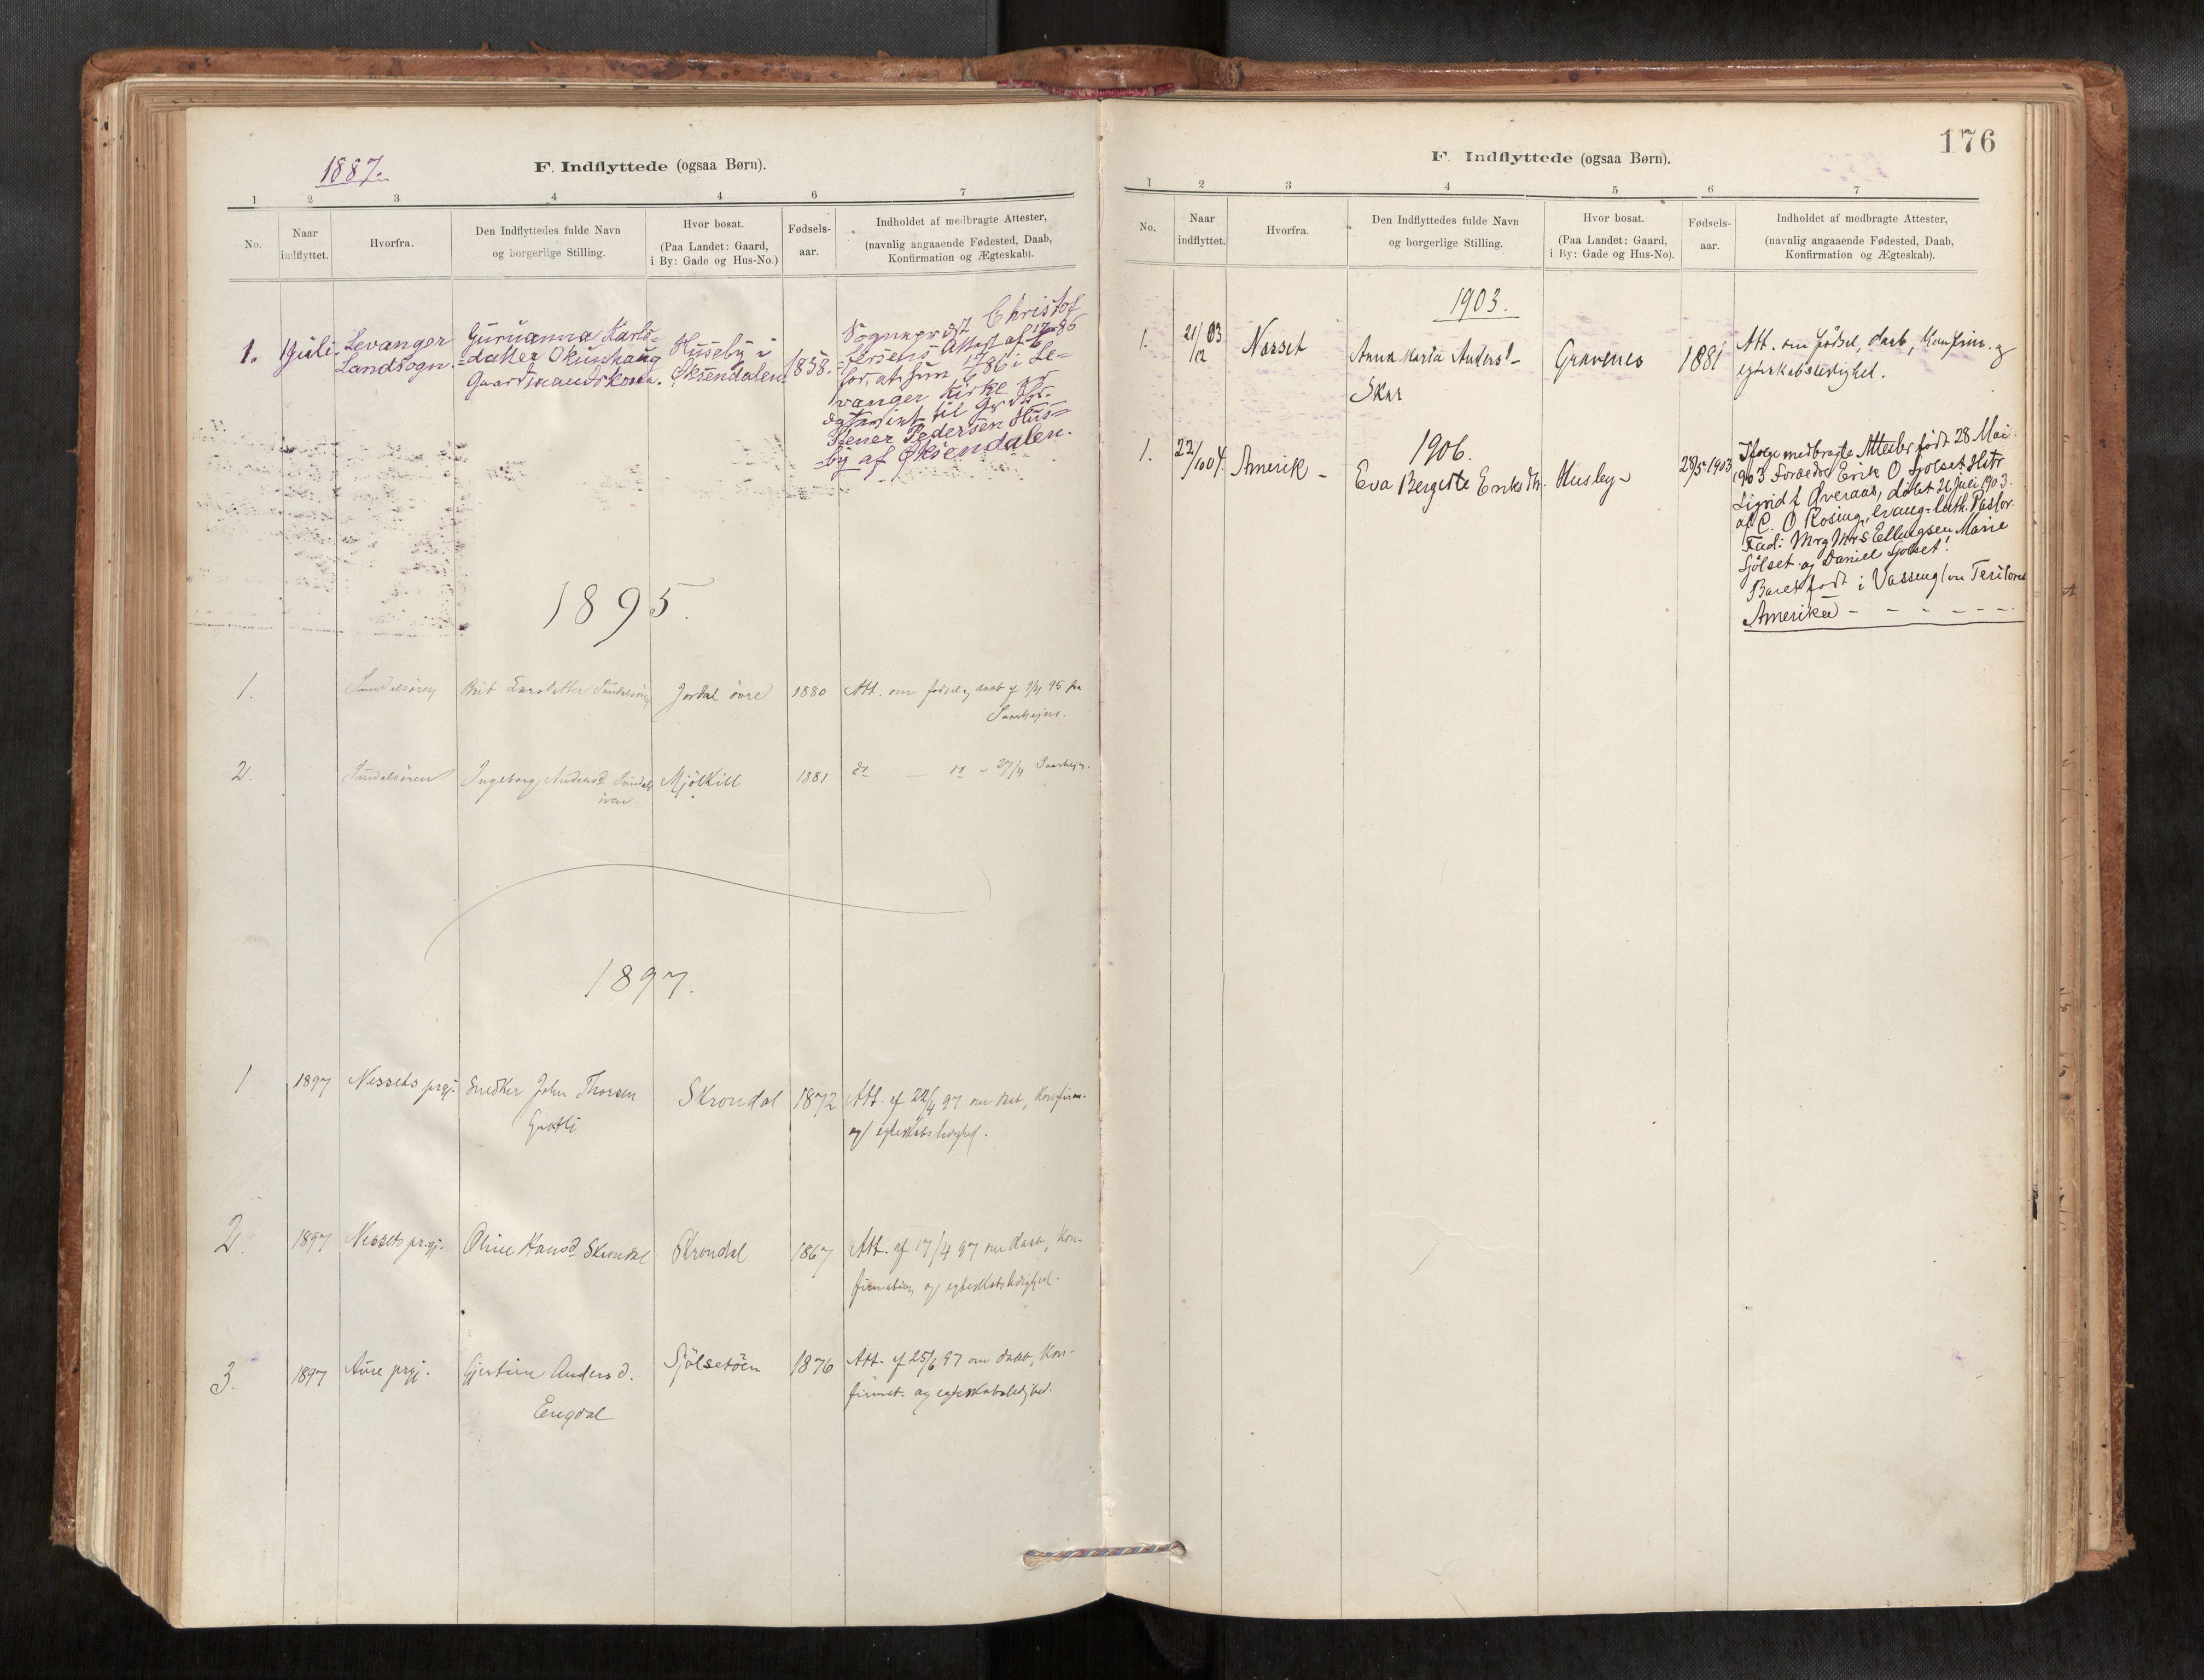 1887.
F. Indflyttede (ogsaa Børn).
1 2 3 4 4 6 7
No.
Naar
indflyttet.
Hvorfra.
Den Indflyttedes fulde Navn
og borgerlige Stilling.
Hvor bosat.
(Paa Landet: Gaard,
i By: Gade og Hus-No.)
Fødsels-
aar.
Indholdet af medbragte Attester,
(navnlig angaaende Fødested, Daab,
Konfirmation og Ægteskab).
1.
1 Juli.
Levanger
Landsogn.
Gurianna Karls-
datter Okünhaug
Gaardmandskone.
Huseby i
Øksendalen.
1858.
Sogneprest Christof
fersens Attest af
for, at hun i Le-
vanger Kirke er
til
Stener Pedersen Hus-
by af Øksendalen.
1895.
1.
Sundalsøren
Brit Larsdatter Sundalsøren
Jordal övre
1880
Att. om fødsel og daab af 9/4 95 fra
2.
Sundalsøren
Ingeborg Andersd. Sundals
øren
Mjölkill
1881
do do 27/4
1897.
1
1897
Nessets prgj.
Snedker John Thorsen
Skrondal
1872
Att. af 22/4 97 om daab, Konfirm.
og egteskabsledighed.
2.
1897
Nessets prgj.
Oline Hansd. Skrondal
Skrondal
1867
Att. af 17/4 97 om daab, Kon-
firmation og egteskabsledighed.
3.
1897
Aure prgj.
Gjertine Andersd.
Engdal
Sjölsetöen
1876
Att. af 25/6 97 om daab, Kon-
firmat. og egteskabsledighed.
176
F. Indflyttede (ogsaa Børn).
1 2 3 4 5 6 7
No.
Naar
indflyttet.
Hvorfra.
Den Indflyttedes fulde Navn
og borgerlige Stilling.
Hvor bosat.
(Paa Landet: Gaard,
i By: Gade og Hus-No).
Fødsels-
aar.
Indholdet af medbragte Attester,
(navnlig angaaende Fødested, Daab,
Konfirmation og Ægteskab).
1903.
1.
21/12 03
Nesset
Anna Maria Andersd
Skar
Gravenes
1881
Att. om fødsel, daab, Konfirm. og
egteskabsledighed.
1906.
1.
22/10 04.
Amerik -
Eva Bergitte Eriksdtr.
Husby -
28/5 1903
Ifølge medbragte Attester født 28 Mai
1903 Foreldre Erik O Sjølset Hstr
Sigrid f Øveraas, døbt 26 Juli 1903.
af C. O Rosing, evang-luth. Pastor.
Fad: Mr og Mrs Ellingsen, Marie
Sjölset og Daniel Sjølset.
Barnet født i Vassengton Teritoret
Amerika - - - - - -